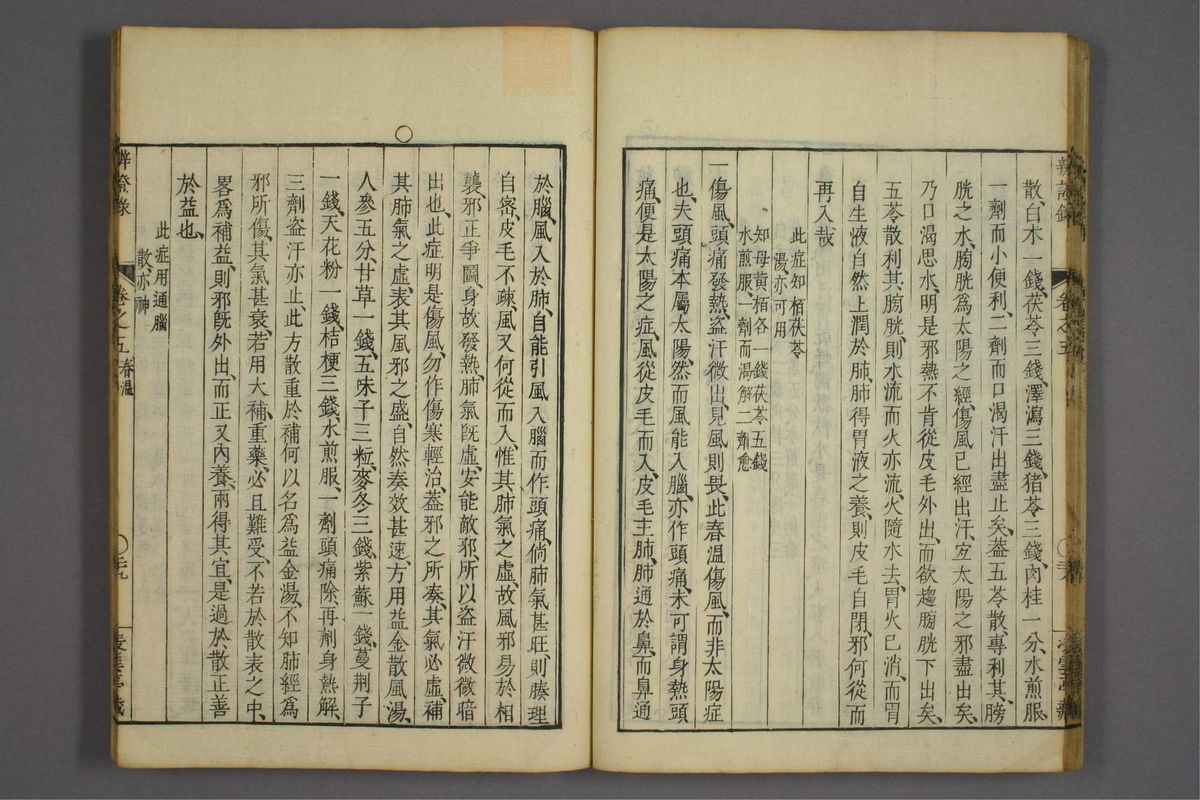 散、白术一錢、茯苓三錢、澤瀉三錢、猪苓三錢、肉桂一分、水煎服、
一劑而小便利、二劑而口渴汗出盡止矣、葢五苓散專利其膀
胱之水、膀胱爲太陽之經、傷風已經出汗、宜太陽之邪盡出矣、
乃口渴思水、明是邪熱不肯從皮毛外出、而欲趨膀胱下出矣、
五苓散利其膀胱、則水流而火亦流、火隨水去、胃火已消、而胃
自生液、自然上潤於肺、肺得胃液之養、則皮毛自閉、邪何從而
再入哉
此症知栢茯苓
湯、亦可用
知母黄栢各一錢茯苓五錢
水煎服、一劑而渴解二劑愈
一傷風、頭痛發熱、盗汗微出、見風則畏、此春温傷風、而非太陽症
也、夫頭痛本屬太陽、然而風能入腦、亦作頭痛、未可謂身熱頭
痛、便是太陽之症、風從皮毛而入、皮毛主肺、肺通於鼻、而鼻通
辨證錄
卷之五
於腦、風入於肺、自能引風入腦而作頭痛、倘肺氣甚旺、則腠理
自密、皮毛不疎、風又何從而入、惟其肺氣之虛、故風邪易於相
襲、邪正爭鬭、身故發熱、肺氣旣虛、安能敵邪、所以盗汗微微暗
出也、此症明是傷風、勿作傷寒輕治、葢邪之所凑、其氣必虛、補
其肺氣之虛、表其風邪之盛、自然奏效甚速、方用益金散風湯、
人參五分、甘草一錢、五味子三粒、麥冬三錢、紫蘇一錢、蔓荆子
一錢、天花粉一錢、桔梗三錢、水煎服、一劑頭痛除、再劑身熱解、
三劑盗汗亦止、此方散重於補、何以名爲益金湯、不知肺經爲
邪所傷、其氣甚衰、若用大補、重藥、必且難受、不若於散表之中、
畧爲補益、則邪旣外出、而正又内養、兩得其宜、是過於散正善
於益也、
此症用通腦
散、亦神
辨證錄
卷之五 春温